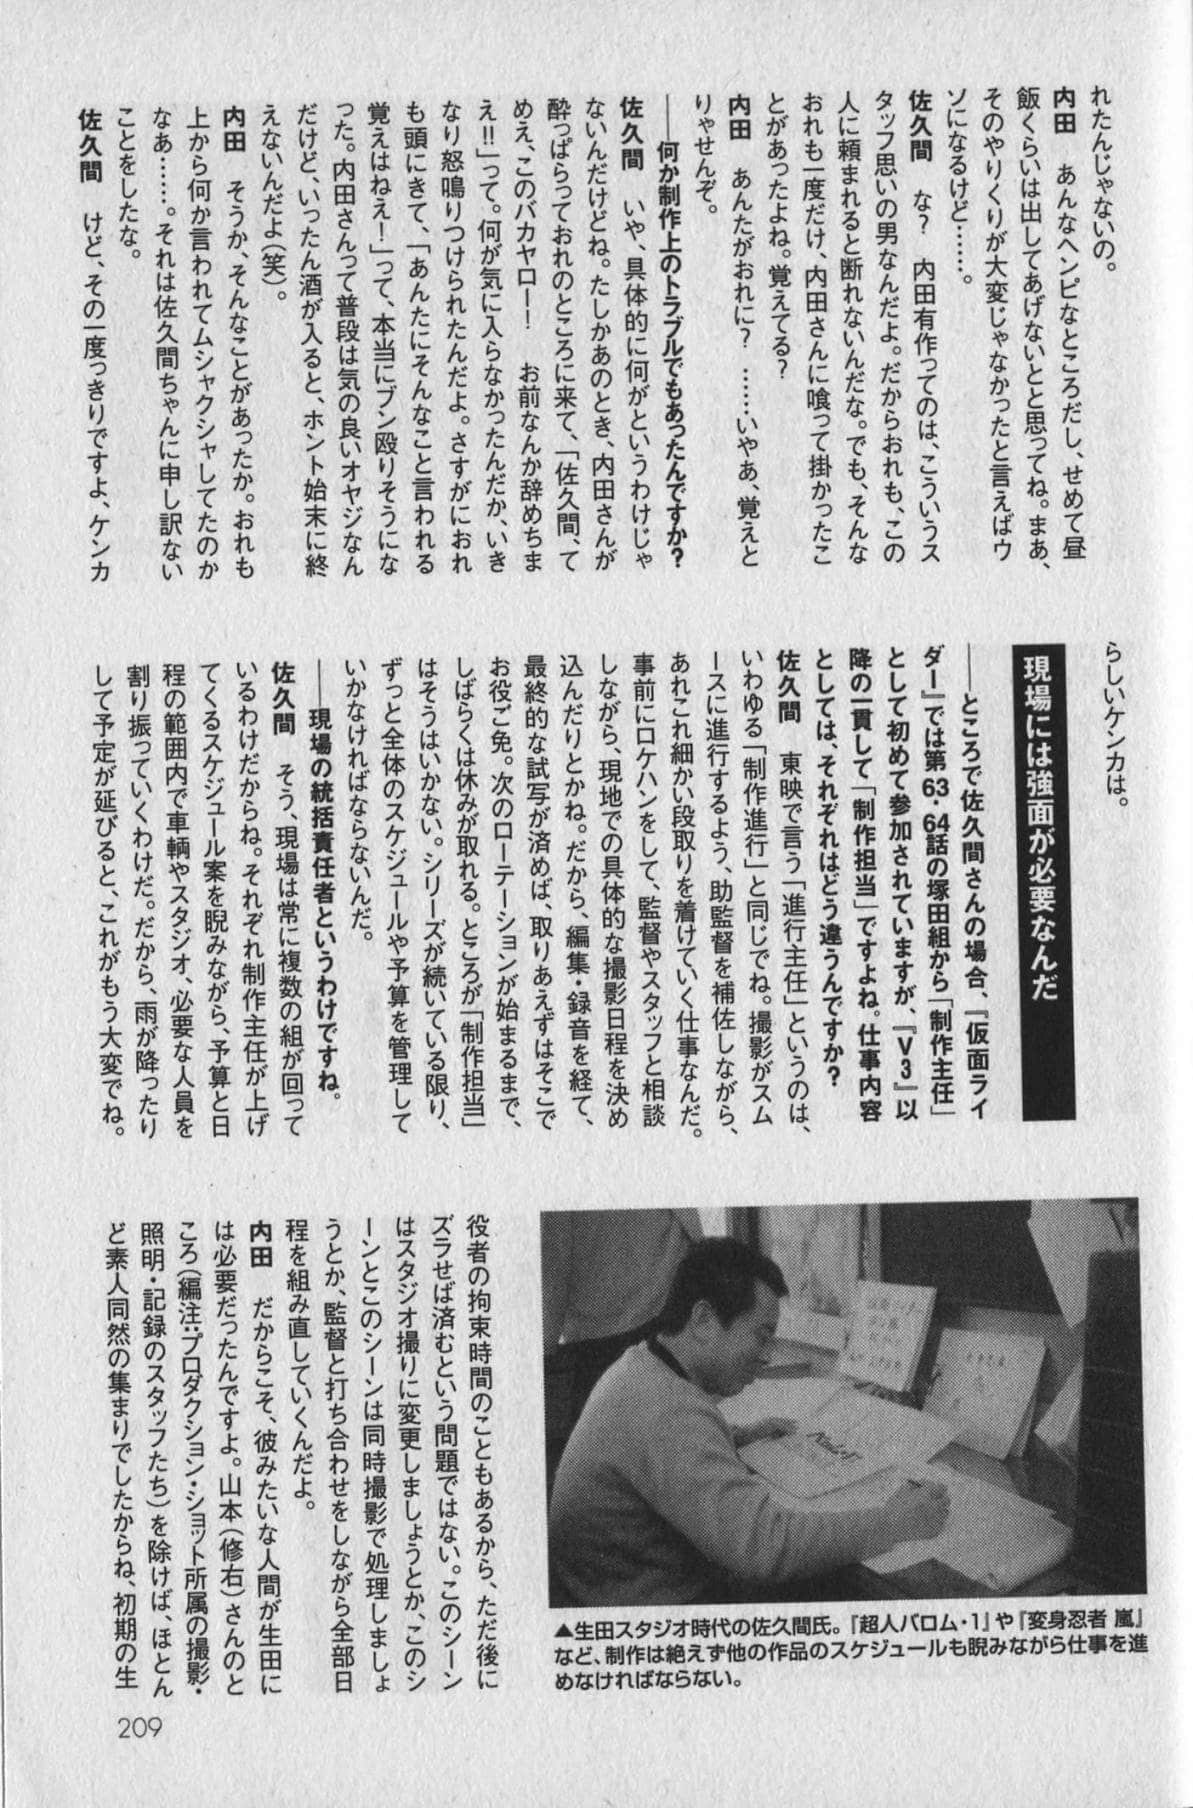 れたんじゃないの。
内田　あんなヘンピなところだし、せめて昼
飯くらいは出してあげないとと思ってね。まあ、
そのやりくりが大変じゃなかったと言えばウ
ソになるけど……。
佐久間　な？　内田有作ってのは、こういうス
タッフ思いの男なんだよ。だからおれも、この
人に頼まれると断れないんだな。でも、そんな
おれも一度だけ、内田さんに喰って掛かったこ
とがあったよね。覚えてる？
内田　あんたがおれに？　……いやあ、覚えと
りゃせんぞ。
――何か制作上のトラブルでもあったんですか？
佐久間　いや、具体的に何がというわけじゃ
ないんだけどね。たしかあのとき、内田さんが
酔っぱらっておれのところに来て、「佐久間、て
めえ、このバカヤロー！　お前なんか辞めちま
え!!」って。何が気に入らなかったんだか、いき
なり怒鳴りつけられたんだよ。さすがにおれ
も頭にきて、「あんたにそんなこと言われる
覚えはねえ！」って、本当にブン殴りそうにな
った。内田さんって普段は気の良いオヤジなん
だけど、いったん酒が入ると、ホント始末に終
えないんだよ（笑）。
内田　そうか、そんなことがあったか。おれも
上から何か言われてムシャクシャしてたのか
なあ……。それは佐久間ちゃんに申し訳ない
ことをしたな。
佐久間　けど、その一度っきりですよ、ケンカ
らしいケンカは。
現場には強面が必要なんだ
――ところで佐久間さんの場合、『仮面ライ
ダー』では第63・64話の塚田組から「制作主任」
として初めて参加されていますが、『V3』以
降の一貫して「制作担当」ですよね。仕事内容
としては、それぞれはどう違うんですか？
佐久間　東映で言う「進行主任」というのは、
いわゆる「制作進行」と同じでね。撮影がスム
ースに進行するよう、助監督を補佐しながら、
あれこれ細かい段取りを着けていく仕事なんだ。
事前にロケハンをして、監督やスタッフと相談
しながら、現地での具体的な撮影日程を決め
込んだりとかね。だから、編集・録音を経て、
最終的な試写が済めば、取りあえずはそこで
お役ご免。次のローテーションが始まるまで、
しばらくは休みが取れる。ところが「制作担当」
はそうはいかない。シリーズが続いている限り、
ずっと全体のスケジュールや予算を管理して
いかなければならないんだ。
――現場の統括責任者というわけですね。
佐久間　そう、現場は常に複数の組が回って
いるわけだからね。それぞれ制作主任が上げ
てくるスケジュール案を睨みながら、予算と日
程の範囲内で車輌やスタジオ、必要な人員を
割り振っていくわけだ。だから、雨が降ったり
して予定が延びると、これがもう大変でね。
役者の拘束時間のこともあるから、ただ後に
ズラせば済むという問題ではない。このシーン
はスタジオ撮りに変更しましょうとか、このシ
ーンとこのシーンは同時撮影で処理しましょ
うとか、監督と打ち合わせをしながら全部日
程を組み直していくんだよ。
内田　だからこそ、彼みたいな人間が生田に
は必要だったんですよ。山本（修右）さんのと
ころ（編注：プロダクション・ショット所属の撮影・
照明・記録のスタッフたち）を除けば、ほとん
ど素人同然の集まりでしたからね、初期の生
▲生田スタジオ時代の佐久間氏。『超人バロム・1』や『変身忍者 嵐』
など、制作は絶えず他の作品のスケジュールも睨みながら仕事を進
めなければならない。
209